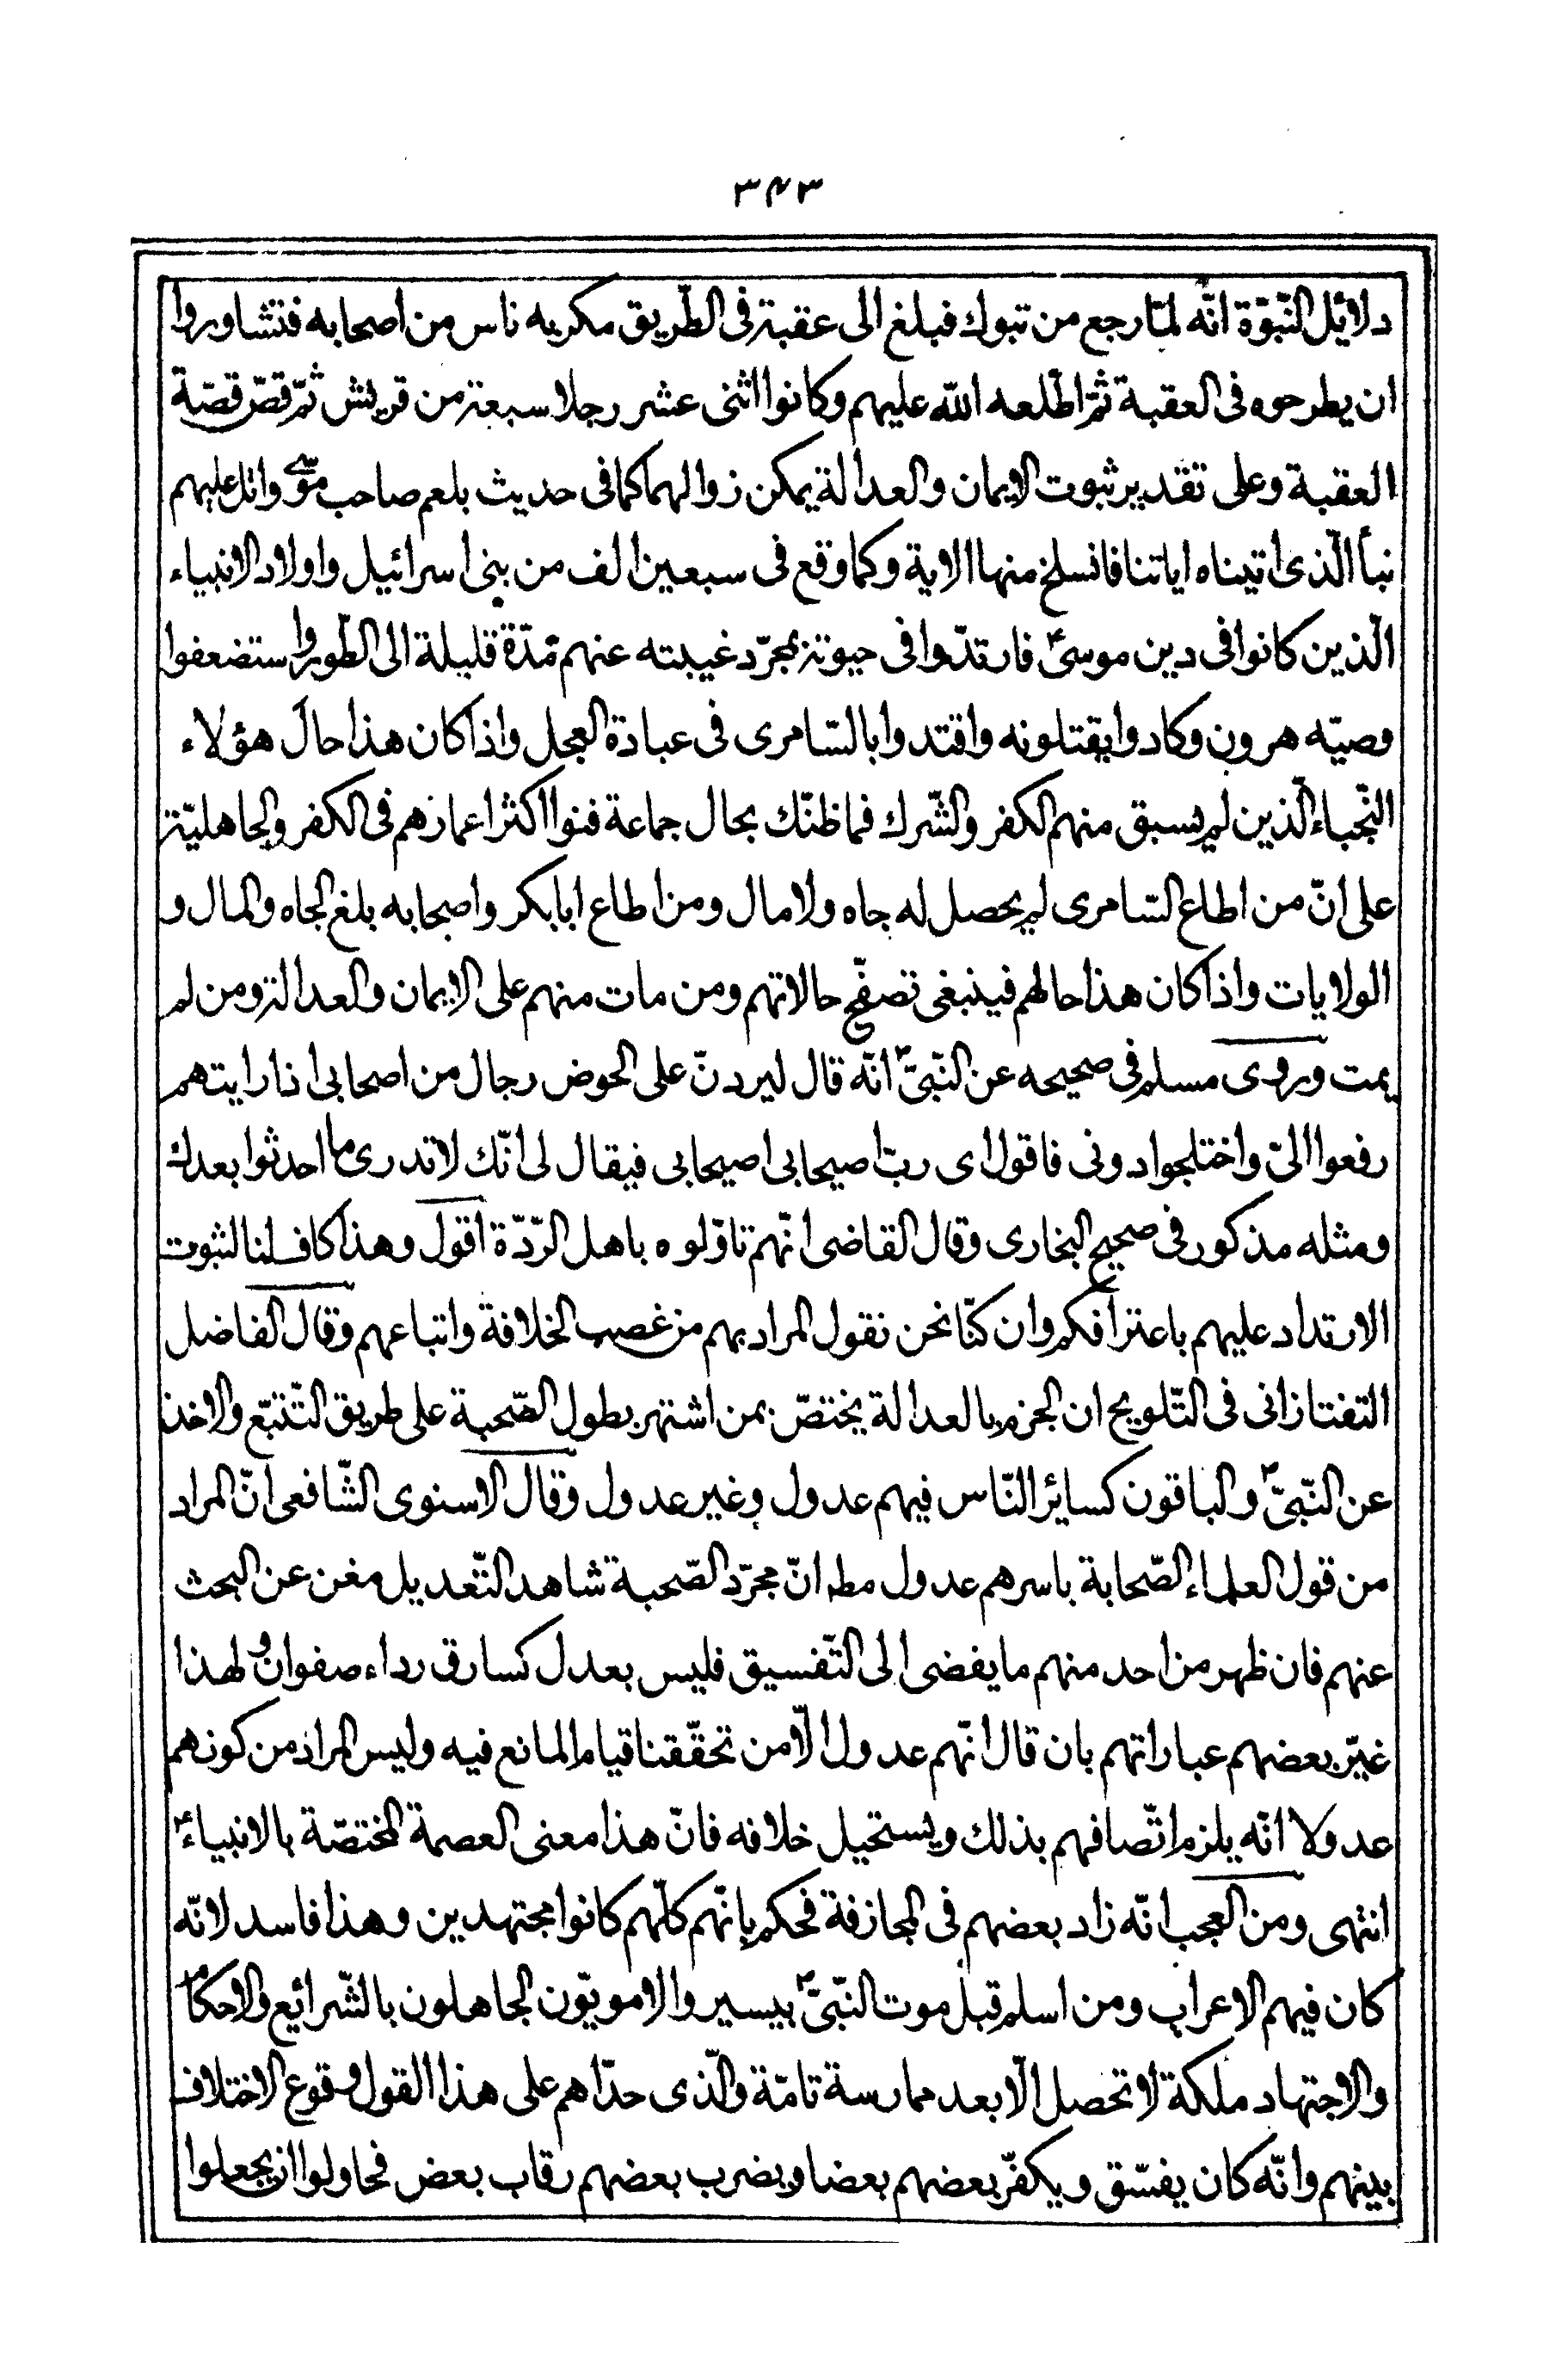 ٣٤٣
دلائل النّبوّة انّه لمّا رجع من تبوك فبلغ الى عقبة فى الطّريق مكر به ناس من اصحابه فتشاوروا
ان يطرحوه فى العقبة ثمّ اطّلعه الله عليهم وكانوا اثنى عشر رجلا سبعة من قريش ثمّ قصّ قصّة
العقبة وعلى تقدير ثبوت الايمان والعدالة يمكن زوالهما كما فى حديث بلعم صاحب موسى واتل عليهم
نبأ الّذى اتيناه اياتنا فانسلخ منها الاية وكما وقع فى سبعين الف من بنى اسرائيل واولاد الانبياء
الّذين كانوا فى دين موسىؑ فارتدّوا فى حيوته بمجرّد غيبته عنهم مدّة قليلة الى الطّور واستضعفوا
وصيّه هرون وكادوا يقتلونه واقتدوا بالسّامرى فى عبادة العجل واذا كان هذا حال هؤلاء
النّجباء الّذين لم يسبق منهم الكفر والشّرك فما ظنّك بحال جماعة فنوا اكثر اعمارهم فى الكفر والجاهليّة
على انّ من اطاع السّامرى لم يحصل له جاه ولا مال ومن اطاع ابابكر واصحابه بلغ الجاه والمال و
الولايات واذا كان هذا حالهم فينبغى تصفّح حالاتهم ومن مات منهم على الايمان والعدالة ومن لم
يمت وروى مسلم فى صحيحه عن النّبىّؐ انّه قال ليردنّ على الحوض رجال من اصحابى اذا رايتهم
رفعوا الىّ واختلجوا دونى فاقول اى ربّ اصيحابى اصيحابى فيقال لى انّك لا تدرى ما احدثوا بعدك
ومثله مذكور فى صحيح البخارى وقال القاضى انّهم تاوّلوه باهل الرّدّة اقول وهذا كاف لنا لثبوت
الارتداد عليهم باعترافكم وان كنّا نحن نقول المراد بهم من غصب الخلافة واتباعهم وقال الفاضل
التفتازانى فى التّلويح ان الجزم بالعدالة يختصّ بمن اشتهر بطول الصّحبة على طريق التّتبّع والاخذ
عن النّبىّؐ والباقون كسائر النّاس فيهم عدول وغير عدول وقال الاسنوى الشّافعى انّ المراد
من قول العلماء الصّحابة باسرهم عدول مط انّ مجرّد الصّحبة شاهد التّعديل مغن عن البحث
عنهم فان ظهر من احد منهم ما يفضى الى التّفسيق فليس بعدل كسارق رداء صفوان ولهذا
غيّر بعضهم عباراتهم بان قال انّهم عدول الّا من تحقّقنا قيام المانع فيه وليس المراد من كونهم
عدولا انّه يلزم اتّصافهم بذلك ويستحيل خلافه فانّ هذا معنى العصمة المختصّة بالانبياءؑ
انتهى ومن العجب انّه زاد بعضهم فى المجازفة فحكم بانّهم كلّهم كانوا مجتهدين وهذا فاسد لانّه
كان فيهم الاعراب ومن اسلم قبل موت النّبىّؐ بيسير والامويّون الجاهلون بالشّرائع والاحكام
والاجتهاد ملكة لا تحصل الّا بعد ممارسة تامّة والّذى حدّاهم على هذا القول وقوع الاختلاف
بينهم وانّه كان يفسّق ويكفّر بعضهم بعضا ويضرب بعضهم رقاب بعض فحاولوا ان يجعلوا